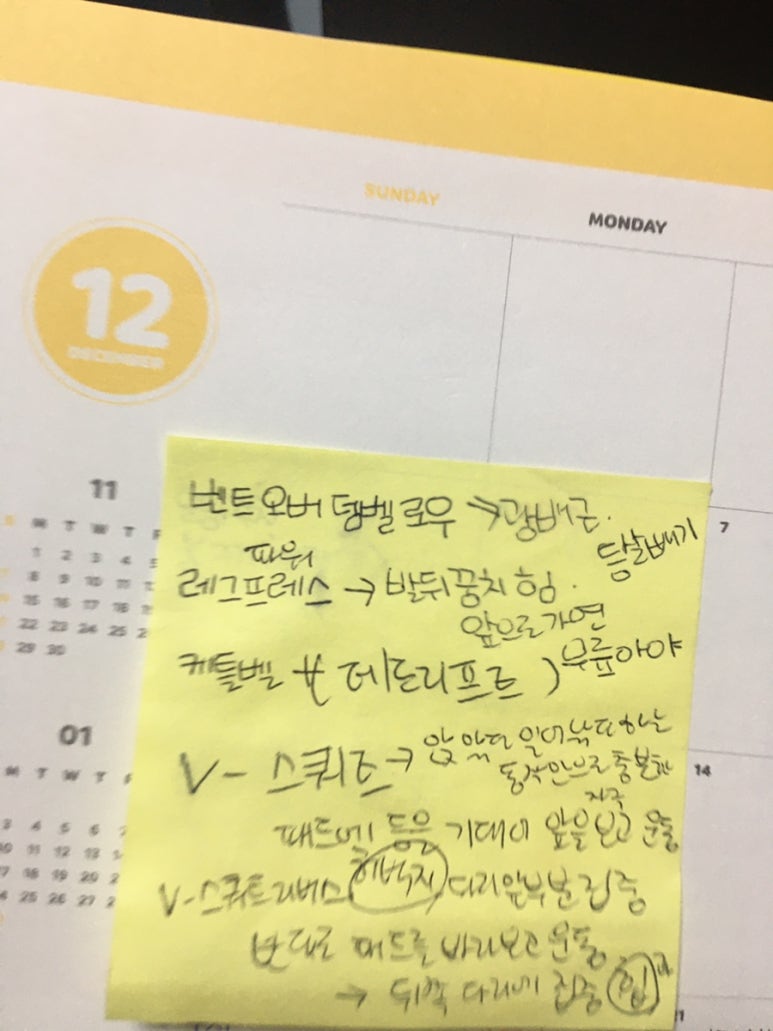 SUNDAY
MONDAY
12
DECEMBER
11
M T W T F
1 2 3 4 5
8 9 10 11 12
15 16 17 18 19
22 23 24 25
29 30
01
M T W T F
3 4 5 6 7
10 11 12 13 14
17 18 19 20
24 25 26 27
7
14
벤트오버 덤벨로우 → 광배근.
등살빼기
파워
레그프레스 → 발뒤꿈치 힘.
앞으로가면
무릎아야
케틀벨 데드리프트
V- 스쿼트 → 앉았다 일어났다하는
동작만으로 충분한
자극
패드에 등을 기대어 앞을보고 운동
허벅지
V-스쿼트리버스 다리앞부분 집중
반대로 패드를 바라보고 운동
→ 뒤쪽 다리에 집중 힙